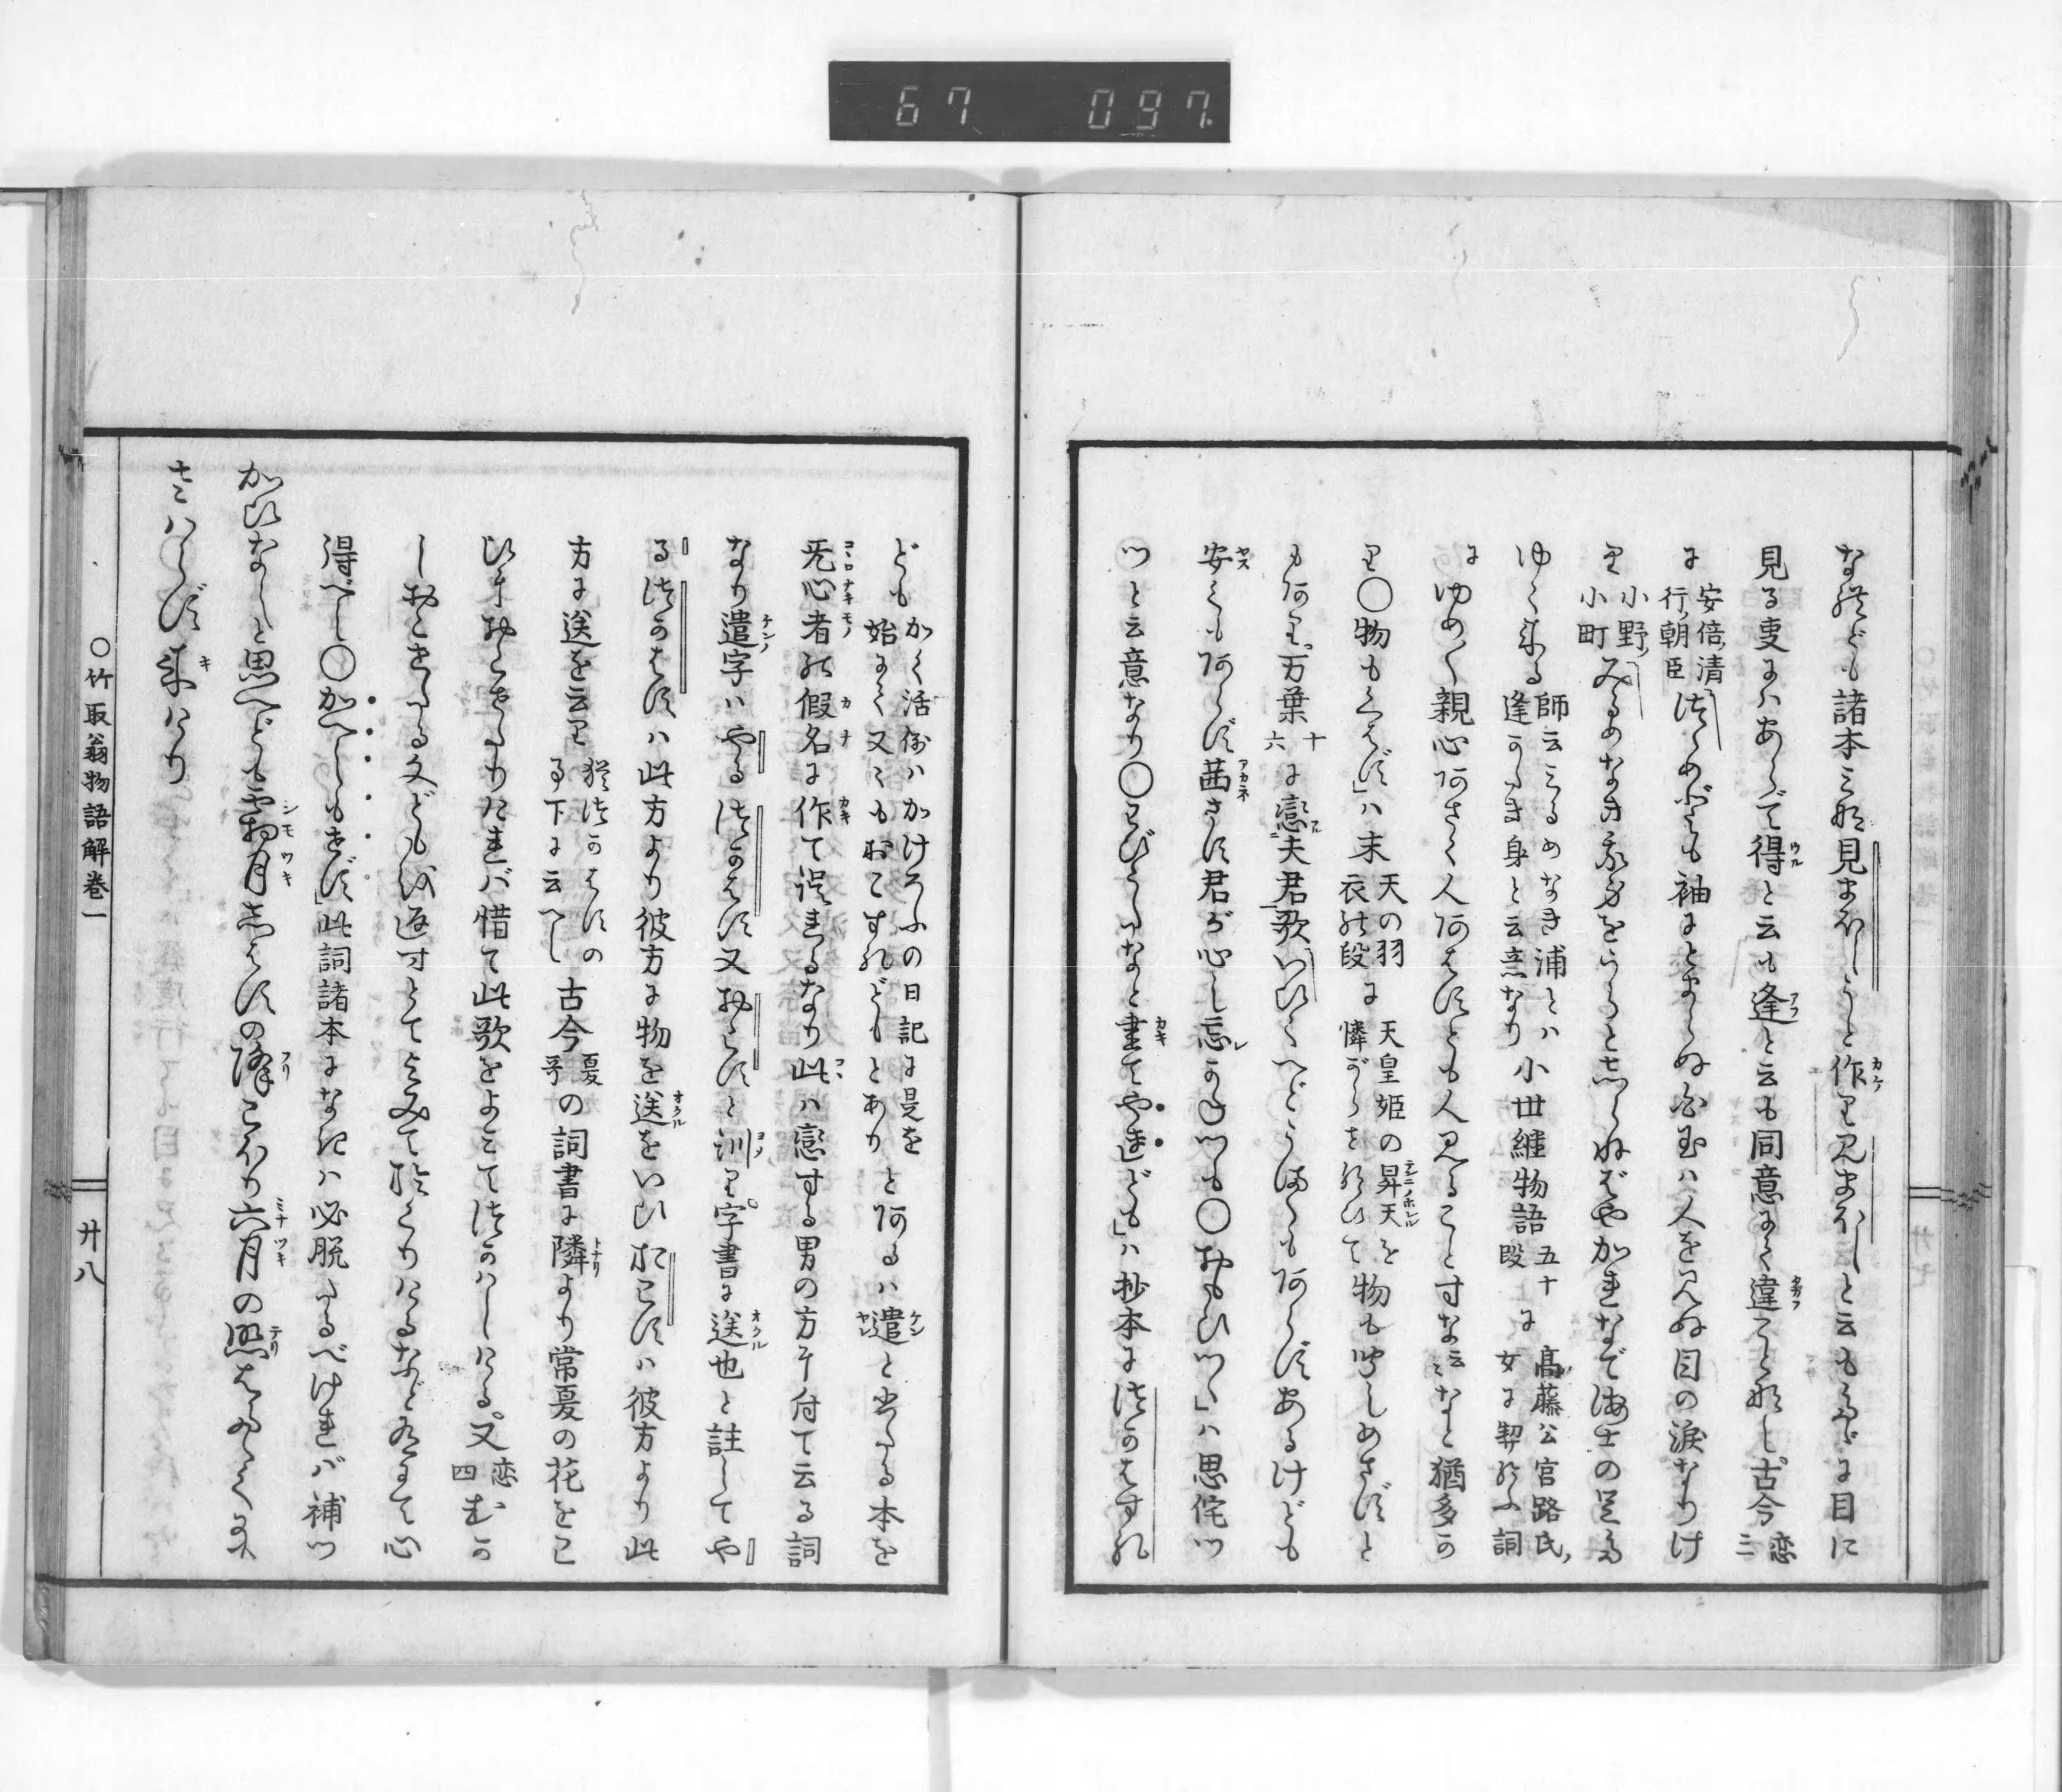 67 097
なれども諸本ミな見まほしうと作リ見まほしと云もるべに目に
見る叓にハあらで得と云も逢と云も同意にて違こと無し古今恋三
に安倍清行朝臣つゝめども袖にたまらぬ白玉ハ人を見ぬ目の涙なりけ
り小野小町みるめなき我身をうらとしらねばやかれなで海士の足る
ゆく来る師云ミるめなき浦とハ逢がたき身と云意なり小世継物語五十段に高藤公官路氏ノ女に契給ふ詞
にゆめ〳〵親心あさく人あはすとも人見ること寸な云ミなと猶多か
り○物もくはず」ハ末天の羽衣の段に天皇姫の昇天を憐がらせ給ひて物も聞しめさずと
もあり万葉十六に戀夫君歌いひくへどうまくもあらずあるけども
安くもあらず茜さす君が心し忘かねつも○おもひつゝ」ハ思侘つ
つと云意なり○わびうたなと書てやれども」ハ抄本につかはすれ
どもかく活例ハかけろふの日記に是を始にて又ミもおこすれどもとありとあるハ遣と当たる本を
旡心者の假名に作て誤れるなり此ハ戀する男の方ヨリ付て云る詞
なり遣字ハやるつかはす又おこすと訓り字書に送也と註してや
るつかはすハ此方より彼方に物を送をいひおこすハ彼方より此
方に送を云り猶つかはすの事下に云べし古今夏哥の詞書に隣より常夏の花をこ
ひにおこせたりけれバ惜て此歌をよミてつかハしける又恋四むか
しおこせたる文どもを返すとてよみて於くりけるなど有にて心
得べし○かへしもせず」此詞諸本になきハ必脱たるべけれバ補つ
かひなしと思へども霜月しはすの降こほり六月の照はたゝくにも
さハらず来けり
○竹取翁物語解巻一
廿八